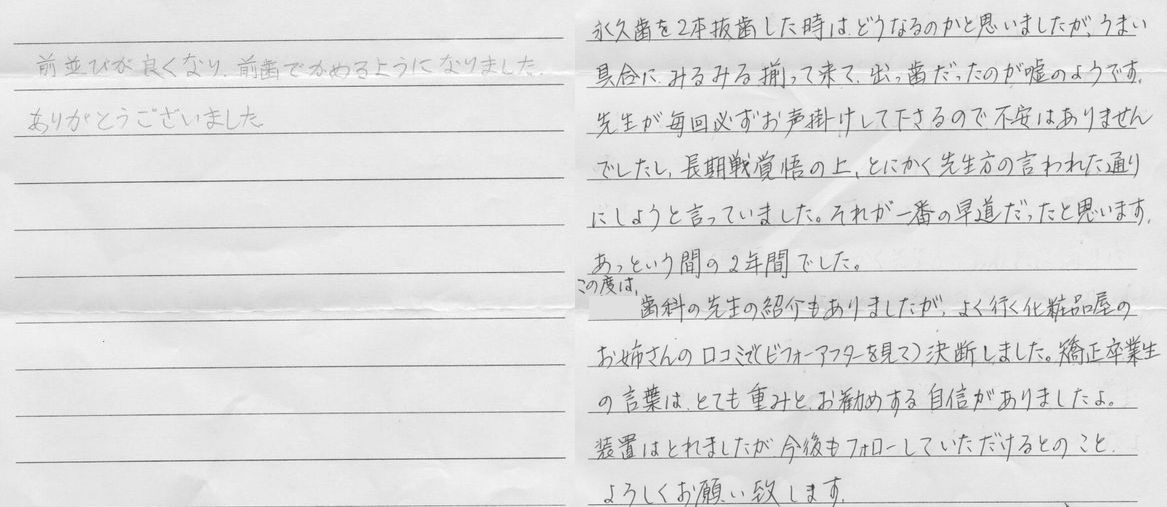 前並びが良くなり、前歯でかめるようになりました。
ありがとうございました
永久歯を2本抜歯した時は、どうなるのかと思いましたが、うまい
具合に、みるみる揃って来て、出っ歯だったのが嘘のようです。
先生が毎回必ずお声掛けして下さるので、不安はありません
でしたし、長期戦覚悟の上、とにかく先生方の言われた通り
にしようと言っていました。それが一番の早道だったと思います。
あっという間の2年間でした。
この度は、
歯科の先生の紹介もありましたが、よく行く化粧品屋の
お姉さんの口コミで(ビフォーアフターを見て)決断しました。矯正卒業生
の言葉は、とても重みと、お勧めする自信がありましたよ。
装置はとれましたが今後もフォローしていただけるとのこと、
よろしくお願い致します。